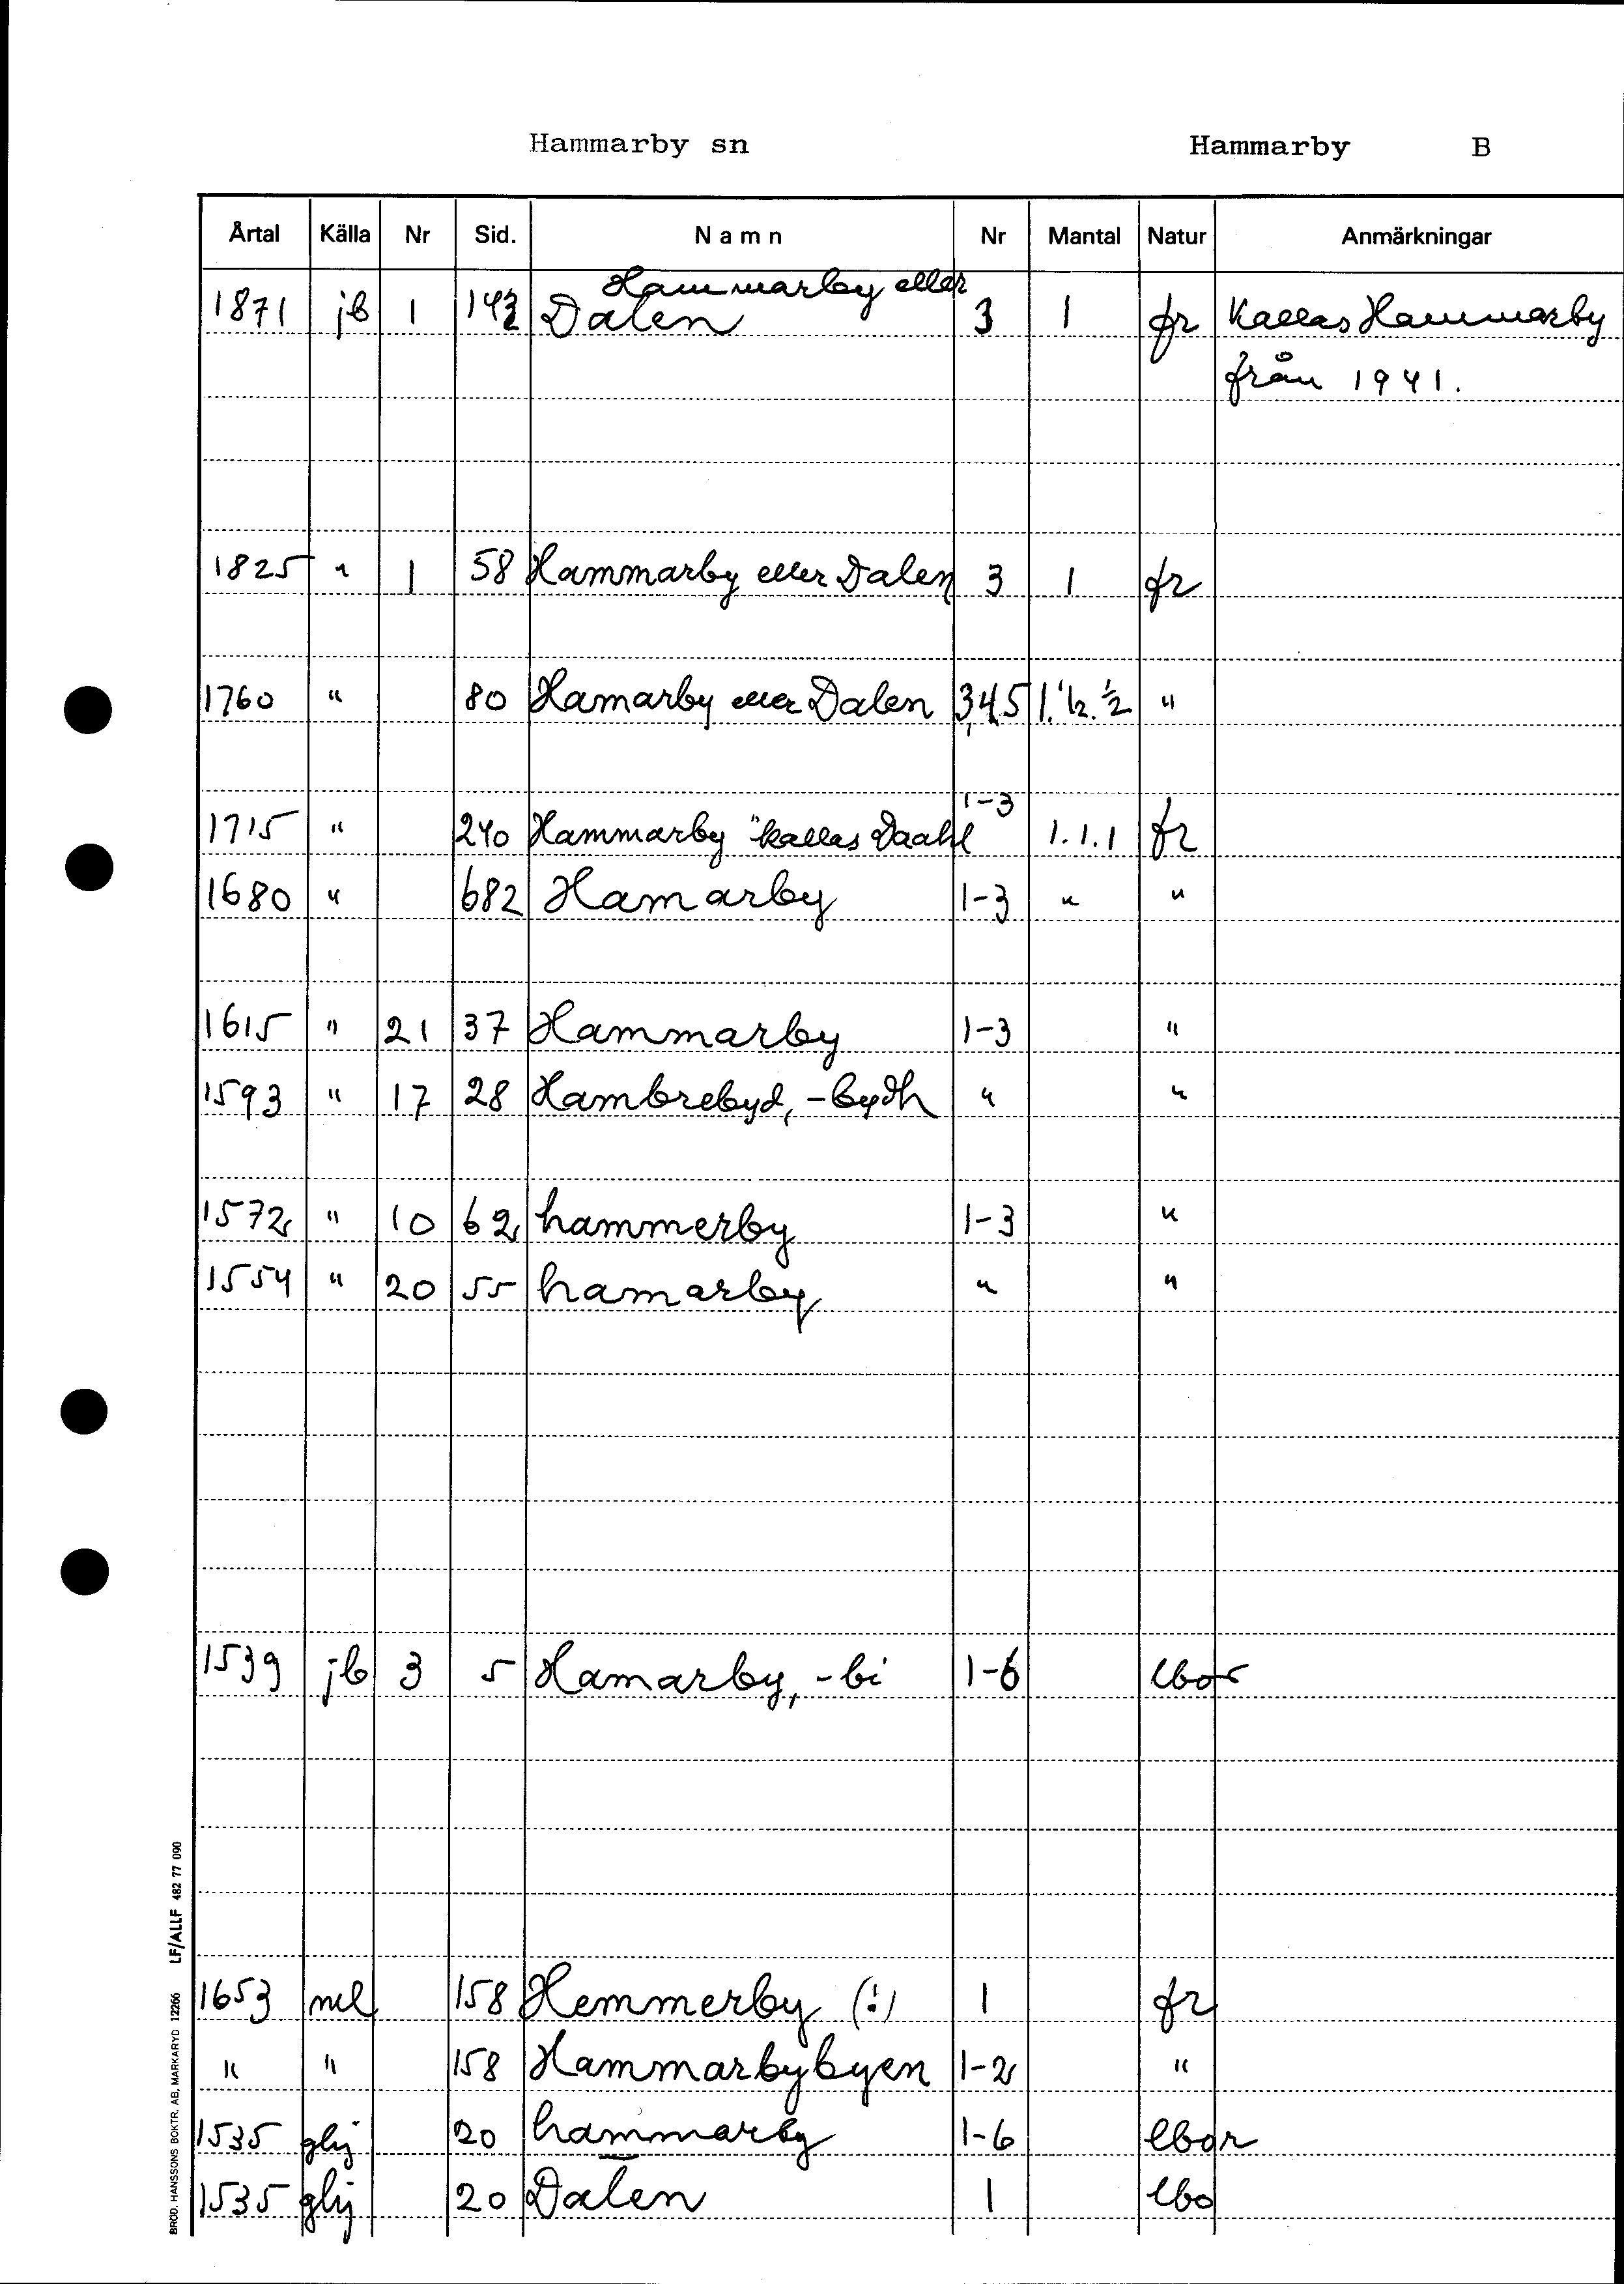 Hammarby sn Hammarby B
Årtal Källa Nr Sid. Namn Nr Mantal Natur Anmärkningar
Hammarby eller
1871 jb 1 Dalen 3 1 fr Kallas Hammarby
från 1941.
1825 " 1 58 Hammarby eller Dalen 3 1 fr
1760 " 80 Hamarby eller Dalen 3,4,5 1. 1/2. 1/2 "
1-3
1715 " 240 Hammarby "kallas Daahl 1.1.1 fr
1680 " 682 Hamarby 1-3 " "
1615 " 21 37 Hammarby 1-3 "
1593 " 17 28 Hambrebyd, -bydh " "
1572 " 10 62 hammerby 1-3 "
1554 " 20 55 hamarby " "
1539 jb 3 5 Hamarby, -bi 1-6 lbor
1653 ml 158 Hemmerby (!) 1 fr
" " 158 Hammarbybyen 1-2 "
1535 glij 20 hammarby 1-6 lbor
1535 glij 20 Dalen 1 lbo
BRÖD. HANSSONS BOKTR. AB, MARKARYD 12266 LF/ALLF 482 77 090